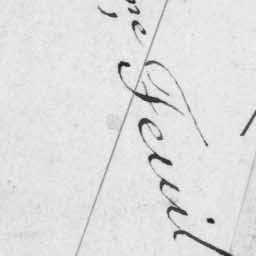 me Feuil